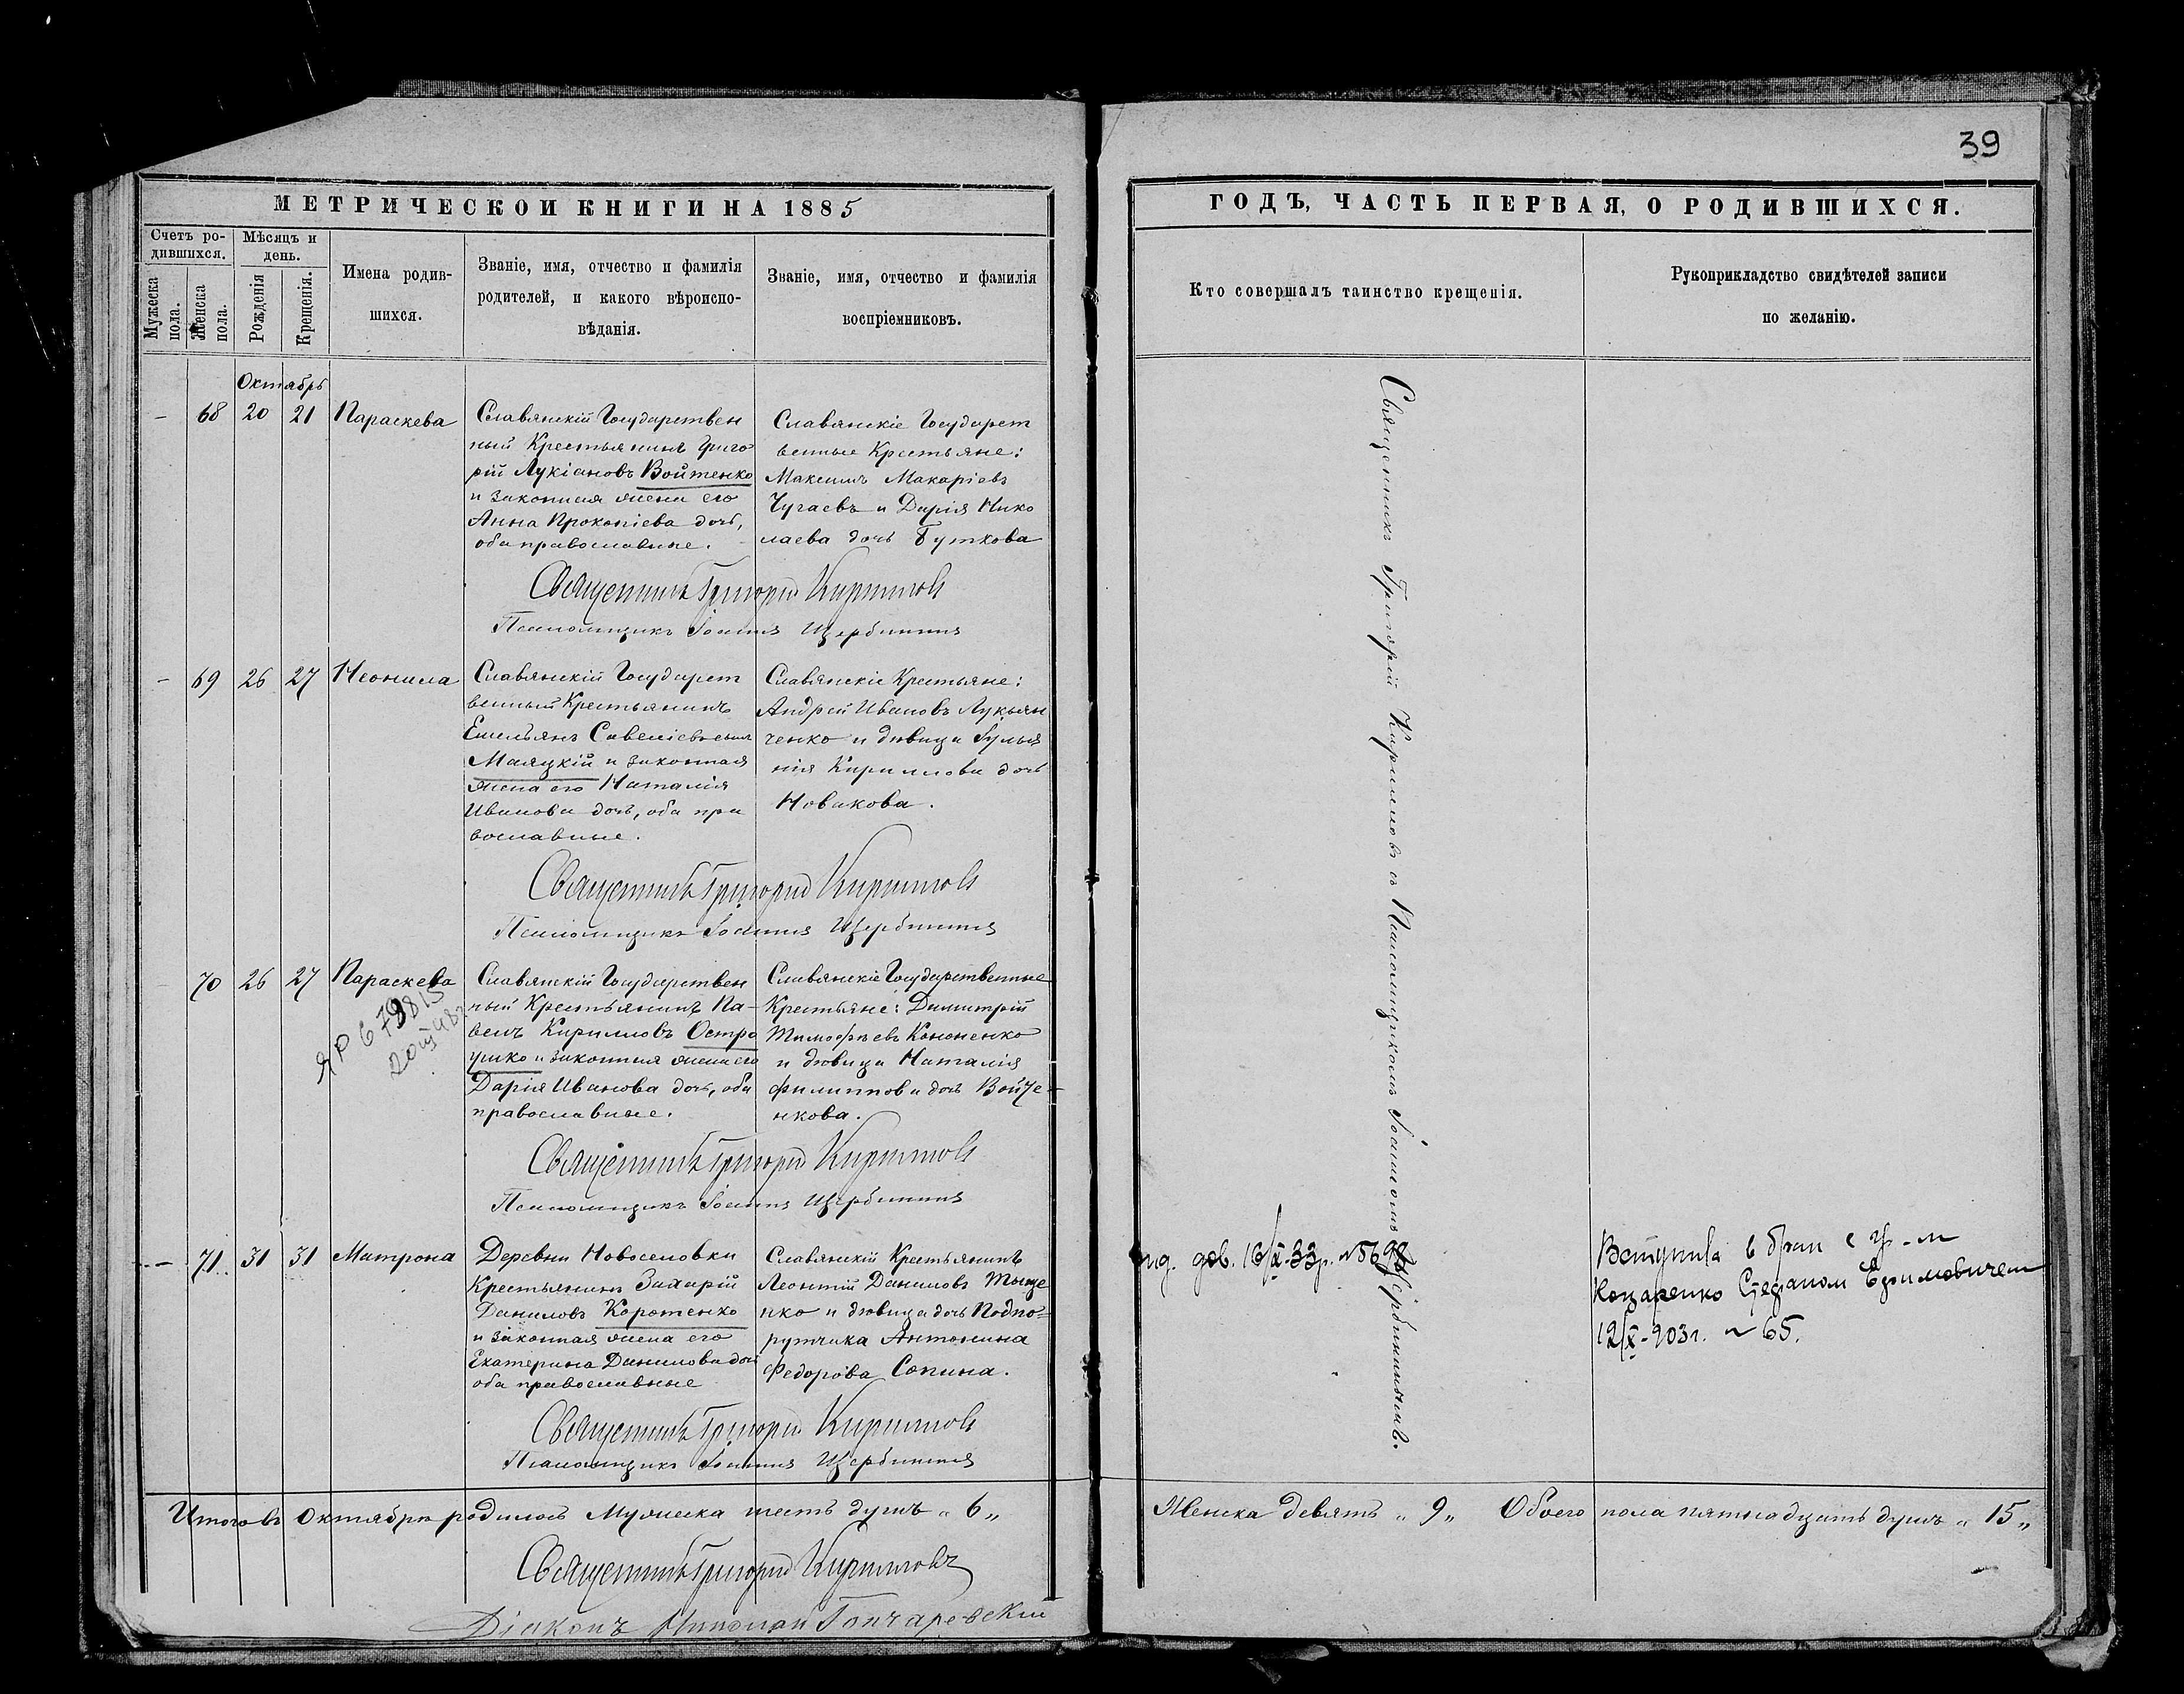 39
МЕТРИЧЕСКОЙ КНИГИ НА 1885
Счетъ ро-
дившихся.
Мужеска
пола.
Женска
пола.
Мѣсяцъ и
день.
Рожденія
Крещенія.
Имена родив-
шихся.
Званіе, имя, отчество и фамилія
родителей, и какого вѣроиспо-
вѣданія.
Званіе, имя, отчество и фамилія
воспріемниковъ.
Октябрь
– 68 20 21 Параскева
Славянскій Государствен
ный Крестьянинъ Григо
рій Лукіановъ Войтенко
и законная жена его
Анна Прокопіева дочь,
оба православные.
Славянскіе Государст
венные Крестьяне:
Максимъ Макаріевъ
Чугаевъ и Дарія Нико
лаева дочь Буткова
Священникъ Григорій Кирилловъ
Псаломщикъ Іоаннъ Щербининъ
– 69 26 27 Неонила
Славянскій Государст
венный Крестьянинъ
Емельянъ Савеліевъ сынъ
Маяцкій и законная
жена его Наталія
Иванова дочь, оба пра
вославные.
Славянскіе Крестьяне:
Андрей Ивановъ Лукьян
ченко и дѣвица Іулья
нія Кириллова дочь
Новакова.
Священникъ Григорій Кирилловъ
Псаломщикъ Іоаннъ Щербининъ
70 26 27 Параскева
ЯР
Славянскій Государствен
ный Крестьянинъ Па-
велъ Кирилловъ Остро
ушко и законная жена его
Дарія Иванова дочь, оба
православные.
Славянскіе Государственные
Крестьяне: Димитрій
Тимофѣевъ Кононенко
и дѣвица Наталія
Филиппова дочь Войче-
нкова.
Священникъ Григорій Кирилловъ
Псаломщикъ Іоаннъ Щербининъ
– 71 31 31 Матрона
Деревни Новоселовки
Крестьянинъ Захарій
Даниловъ Коротенко
и законная жена его
Екатерина Данилова дочь
оба православные
Славянскій Крестьянинъ
Леонтій Даниловъ Тыще
нко и дѣвица дочь Подпо=
рутчика Антонина
Федорова Сопина.
Священникъ Григорій Кирилловъ
Псаломщикъ Іоаннъ Щербининъ
Итого въ Октябрѣ родилось Мужеска шесть душъ „ 6 „
Священникъ Григорій Кирилловъ
Діаконъ Гончаревскій
ГОДЪ, ЧАСТЬ ПЕРВАЯ, О РОДИВШИХСЯ.
Кто совершалъ таинство крещенія.
Рукоприкладство свидѣтелей записи
по желанію.
Священникъ Григорій Кирилловъ съ Псаломщикомъ Іоанномъ Щербининымъ.
дов. 16/X-33г.
Вступила в брак с гр-м
Козаренко Степаном Ефимовичем
12/X-903г. № 65.
Женска девять „ 9 „ Обоего пола пятнадцать душъ „ 15 „